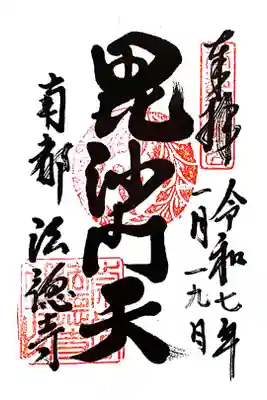 奉拝
令和七年
一月一九日
毘沙門天
南都 法徳寺